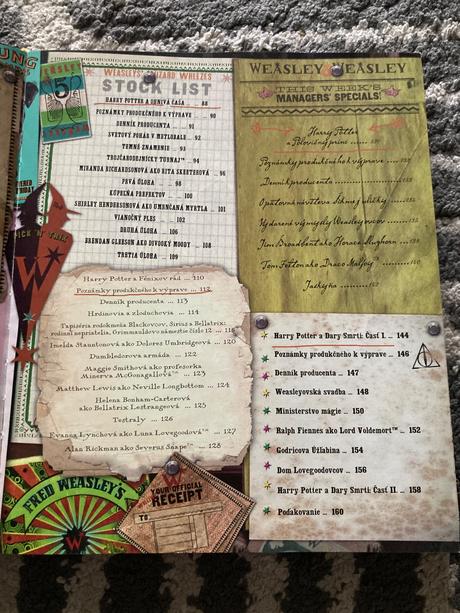 WEASLEYS' WIZARD WHEEZES
STOCK LIST
HARRY POTTER A OHNIVÁ ČAŠA ... 88
POZNÁMKY PRODUKČNÉHO K VÝPRAVE ... 90
DENNÍK PRODUCENTA ... 91
SVETOVÝ POHÁR V METLOBALE ... 92
TEMNÉ ZNAMENIE ... 93
TROJČARODEJNÍCKY TURNAJ™ ... 94
MIRANDA RICHARDSONOVÁ AKO RITA SKEETEROVÁ ... 96
PRVÁ ÚLOHA ... 98
KÚPEĽŇA PREFEKTOV ... 100
SHIRLEY HENDERSONOVÁ AKO UMRNČANÁ MYRTLA ... 101
VIANOČNÝ PLES ... 102
DRUHÁ ÚLOHA ... 106
BRENDAN GLEESON AKO DIVOOKÝ MOODY ... 108
TRETIA ÚLOHA ... 109
Harry Potter a Fénixov rád ... 110
Poznámky produkčného k výprave ... 112
Denník producenta ... 113
Hrdinovia a zloduchovia ... 114
Tapiséria rodokmeňa Blackovcov, Sirius a Bellatrix:
rodinní nepriatelia, Grimmauldovo námestie číslo 12 ... 118
Imelda Stauntonová ako Dolores Umbridgeová ... 120
Dumbledorova armáda ... 122
Maggie Smithová ako profesorka
Minerva McGonagallová™ ... 123
Matthew Lewis ako Neville Longbottom ... 124
Helena Bonham-Carterová
ako Bellatrix Lestrangeová ... 125
Testraly ... 126
Evanna Lynchová ako Luna Lovegoodová™ ... 127
Alan Rickman ako Severus Snape™ ... 128
FRED WEASLEY'S
YOUR OFFICIAL
RECEIPT
TO
WEASLEY & WEASLEY
THIS WEEK'S
MANAGERS' SPECIALS!
Harry Potter
a Polovičný princ
Poznámky produkčného k výprave
Denník producenta
Vydarené výmysly Weasleyovcov
Jim Broadbent ako Horace Slughorn
Tom Felton ako Draco Malfoy™
Jaskyňa
Harry Potter a Dary Smrti: Časť I. ... 144
Poznámky produkčného k výprave ... 146
Denník producenta ... 147
Weasleyovská svadba ... 148
Ministerstvo mágie ... 150
Ralph Fiennes ako Lord Voldemort™ ... 152
Godricova Úžľabina ... 154
Dom Lovegoodovcov ... 156
Harry Potter a Dary Smrti: Časť II. ... 158
Poďakovanie ... 160